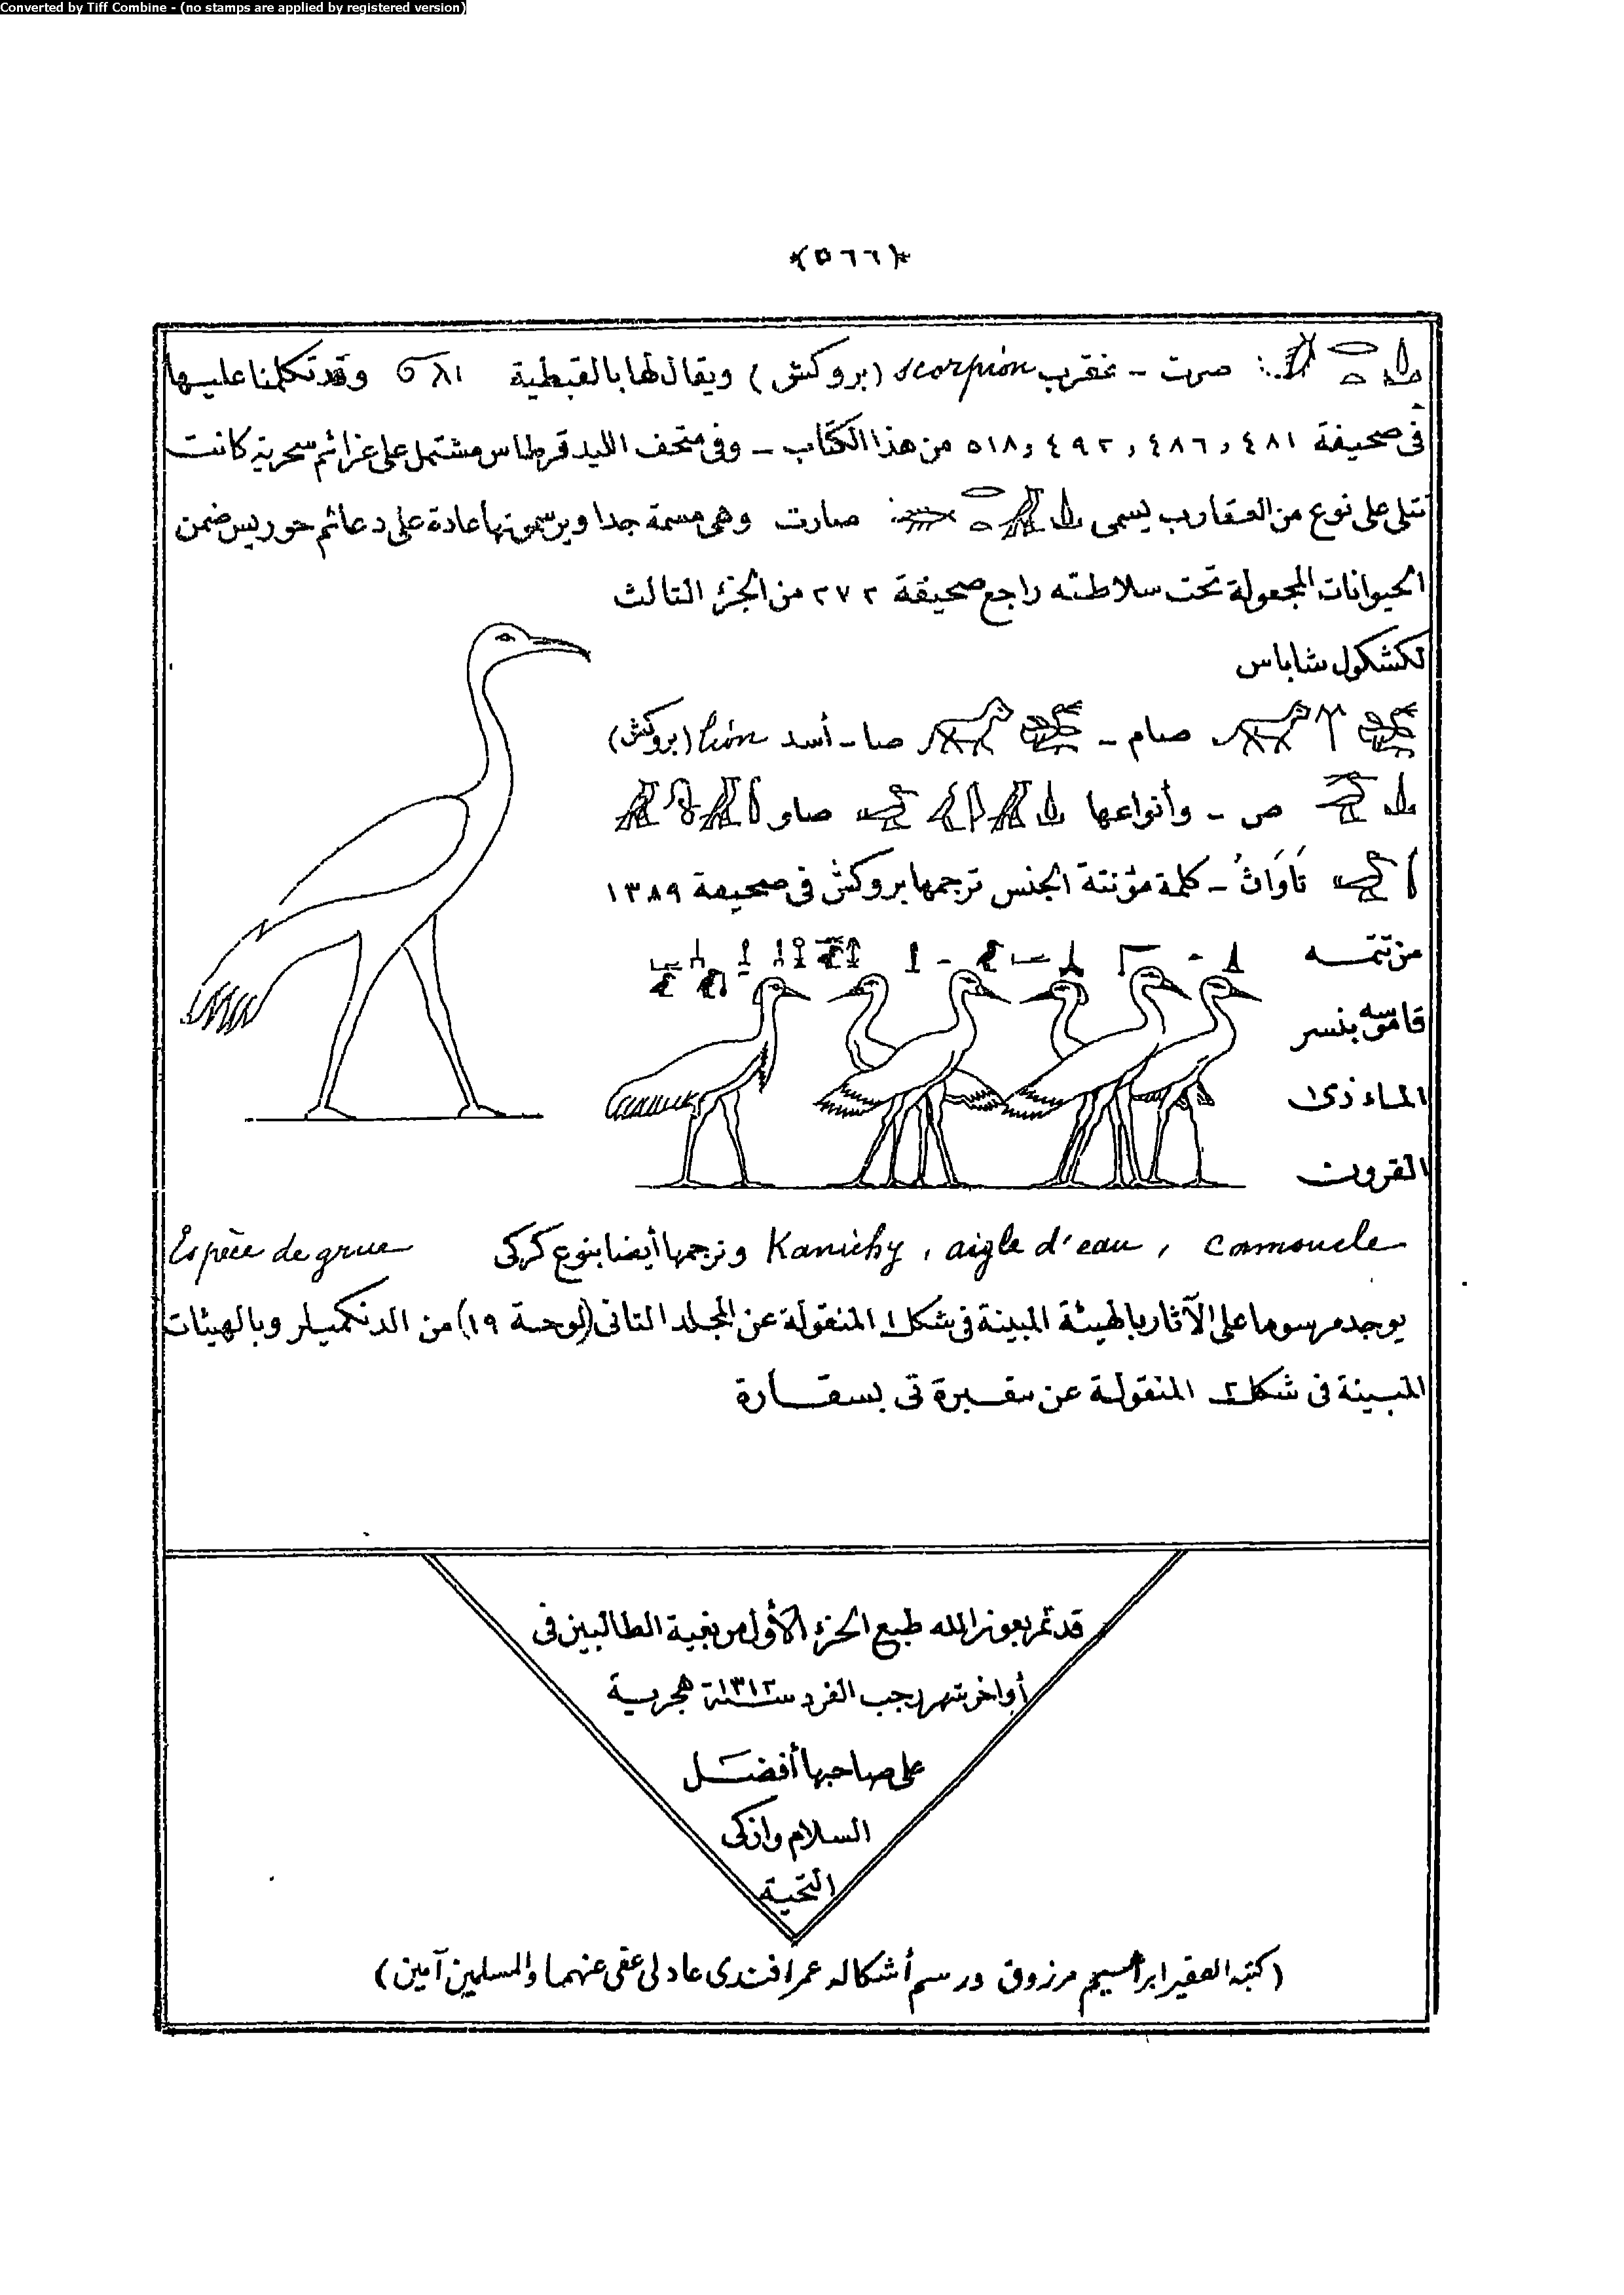 Converted by Tiff Combine - (no stamps are applied by registered version)
*(٥٦٦)*
صرت - عقرب scorpion (بروكش) ويقال لها بالقبطية وقد تكلمنا عليها
فى صحيفة ٤٨١ و ٤٨٦ و ٤٩٢ و ٥١٨ من هذا الكتاب - وفى متحف الليد قرطاس مشتمل على عزائم سحرية كانت
تتلى على نوع من العقارب يسمى صارت وهى مسمة جدا ويرسمونها عادة على دعائم حوريس ضمن
الحيوانات المجعولة تحت سلاطته راجع صحيفة ٢٧٢ من الجزء الثالث
لكشكول شاباس
صام - صا - أسد lion (بروكش)
ص - وأنواعها صاو
تَاوَاتُ - كلمة مؤنثة الجنس ترجمها بروكش فى صحيفة ١٣٨٩
من تتمه
قاموسه بنسر
الماء ذى
القرون
camoucle , aigle d'eau , Kamichy وترجمها أيضا بنوع كركى Espèce de grue
يوجد مرسوما على الآثار بالهيئة المبينة فى شكل ١ المنقولة عن المجلد الثانى (لوحة ١٩) من الدنكميلر وبالهيئات
المبينة فى شكل ٢ المنقولة عن مقبرة تى بسقارة
قد تم بعون الله طبع الجزء الأول من بغية الطالبين فى
أواخر شهر رجب الفرد سنة ١٣١٢ هجرية
على صاحبها أفضل
السلام وازكى
التحية
(كتبه الفقير ابراهيم مرزوق ورسم أشكاله عمر افندى عادلى عفى عنهما والمسلمين آمين)